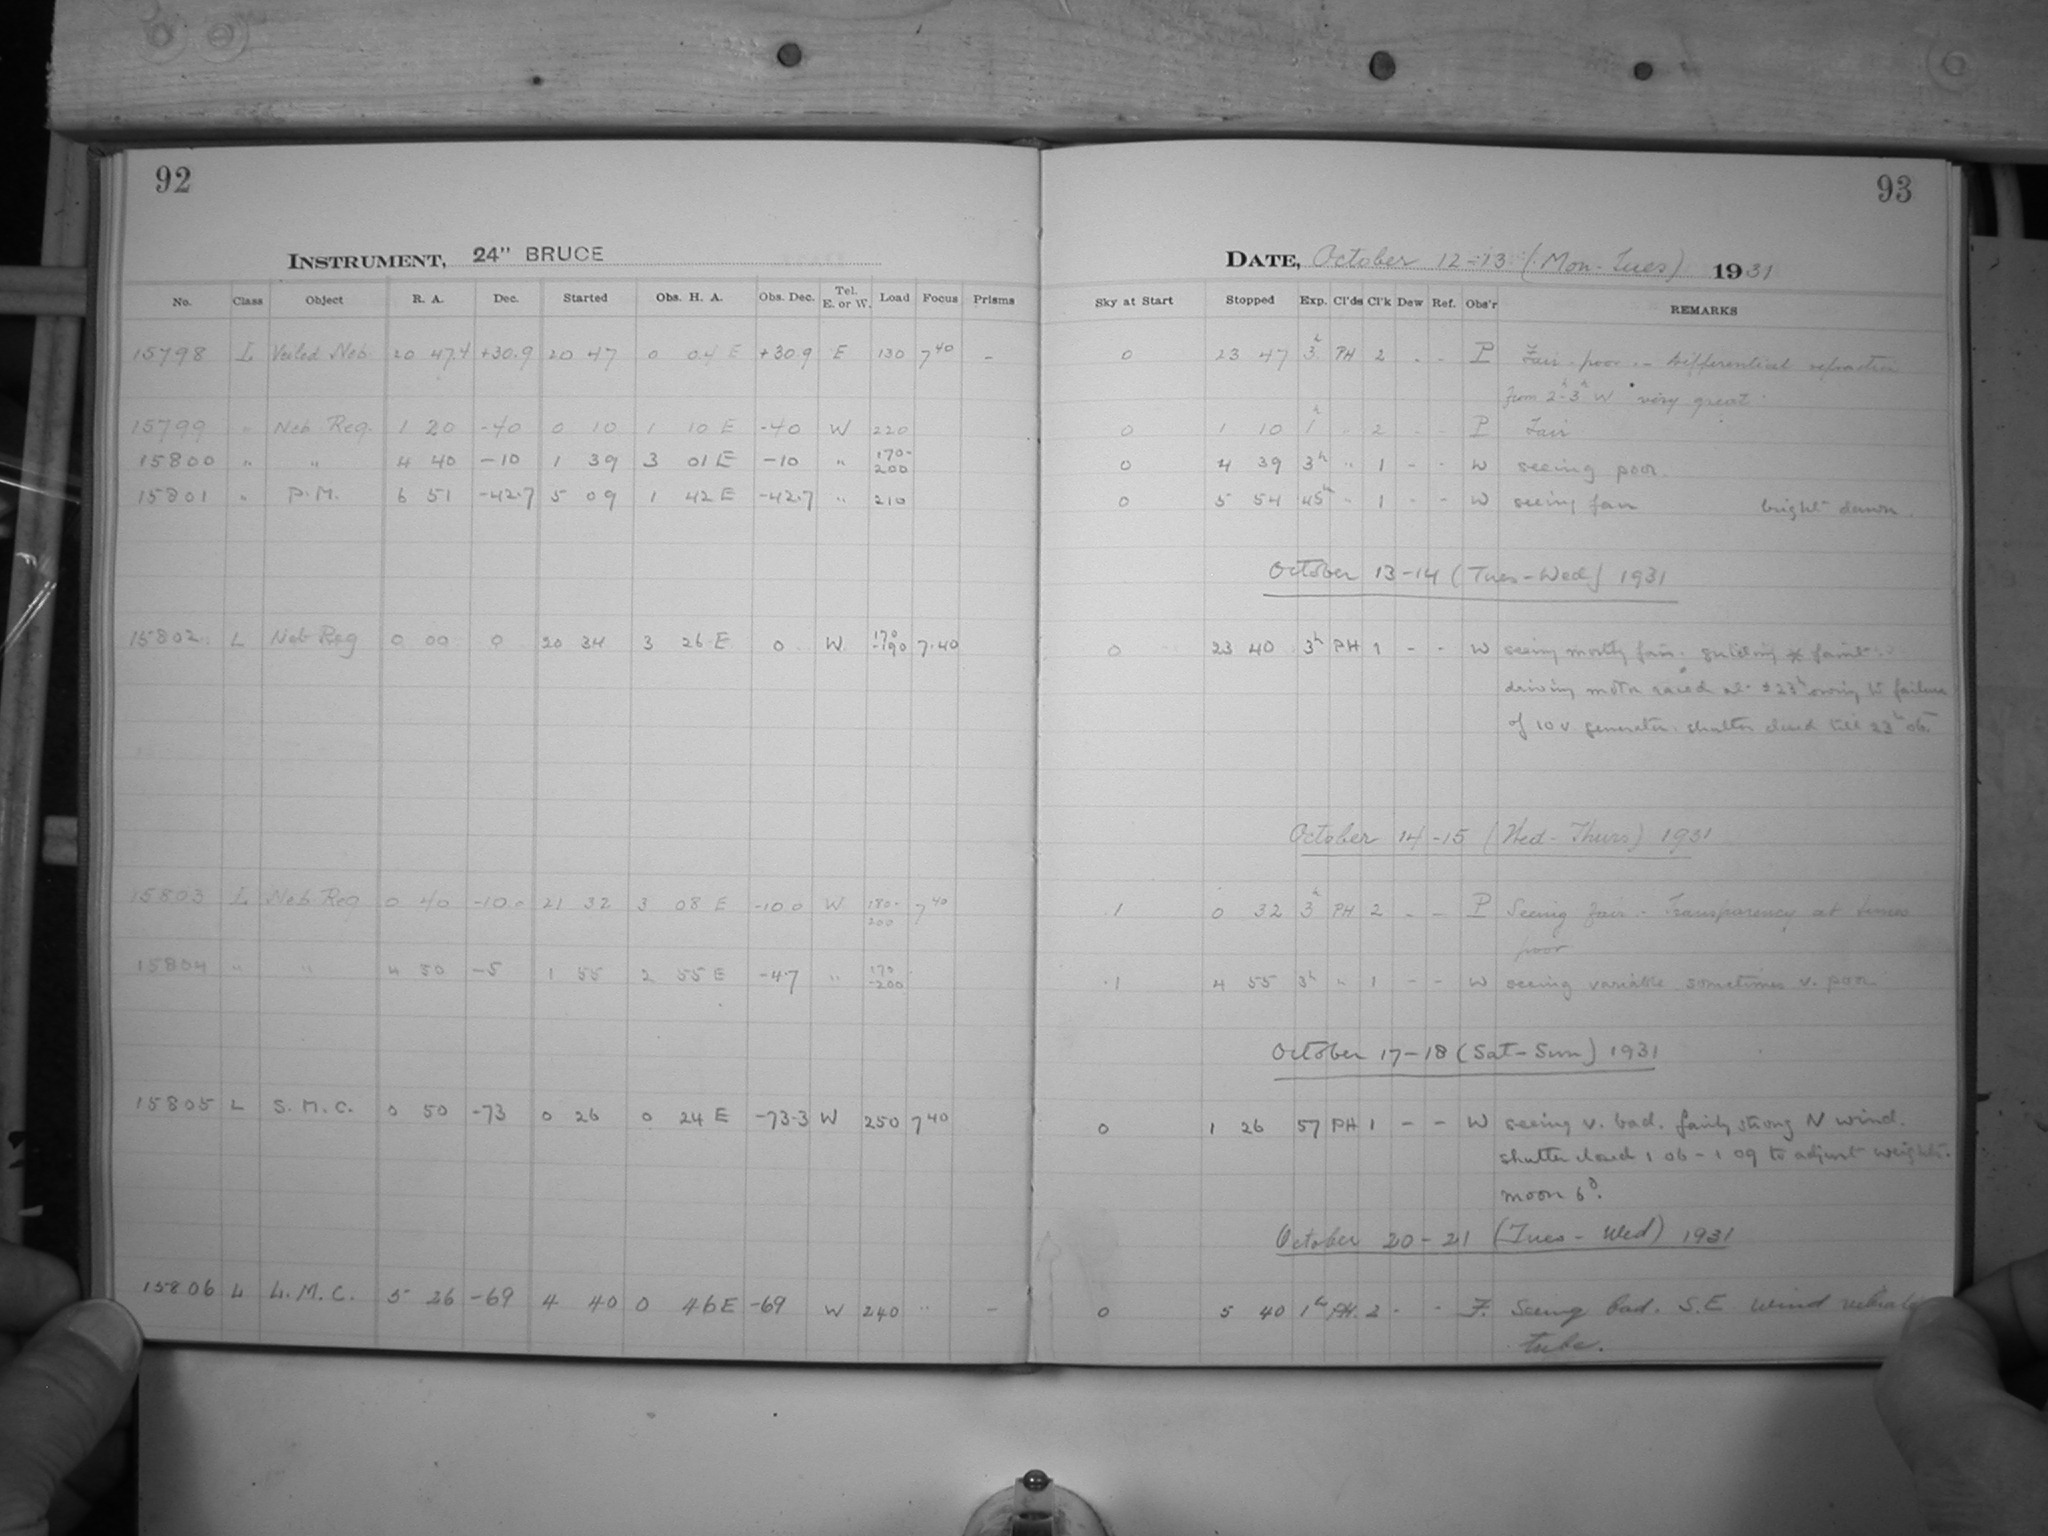 92
INSTRUMENT, 24" BRUCE
No. Class Object R. A. Dec. Started Obs. H. A. Obs. Dec. Tel. E. or W. Load Focus Prisms
15798 L Veiled Neb. 20 47.4 +30.9 20 47 0 04 E +30.9 E 130 7 40 -
15799 " Neb Reg. 1 20 -40 0 10 1 10 E -40 W 220
15800 " " 4 40 -10 1 39 3 01 E -10 " 170-200
15801 " P.M. 6 51 -42.7 5 09 1 42 E -42.7 " 210
15802 L Neb Reg 0 00 0 20 34 3 26 E 0 W 170-190 7.40
15803 L Neb Reg 0 40 -10.0 21 32 3 08 E -10.0 W 180-200 7 40
15804 " " 4 50 -5 1 55 2 55 E -4.7 " 170-200
15805 L S.M.C. 0 50 -73 0 26 0 24 E -73.3 W 250 7 40
15806 L L.M.C. 5 26 -69 4 40 0 46 E -69 W 240 " -
93
DATE, October 12-13 (Mon-Tues) 1931
Sky at Start Stopped Exp. Cl'ds Cl'k Dew Ref. Obs'r REMARKS
0 23 47 3h PH 2 - - P Fair-poor -- Differential refraction
from 2h-3h W very great.
0 1 10 1h " 2 - - P Fair
0 4 39 3h " 1 - - W seeing poor.
0 5 54 45 " 1 - - W seeing fair bright dawn.
October 13-14 (Tues-Wed) 1931
0 23 40 3h PH 1 - - W seeing mostly fair. guiding * faint.
driving motor raced at 23h owing to failure
of 10 v generator. shutter closed till 23h 06.
October 14-15 (Wed-Thurs) 1931
.1 0 32 3h PH 2 - - P Seeing fair - Transparency at times
poor
.1 4 55 3h " 1 - - W seeing variable sometimes v. poor
October 17-18 (Sat-Sun) 1931
0 1 26 57 PH 1 - - W seeing v. bad. fairly strong N wind.
shutter closed 1 06 - 1 09 to adjust weights.
moon 6d.
October 20-21 (Tues-Wed) 1931
0 5 40 1h PH. 2 - - F. Seeing bad. S.E wind
tube.